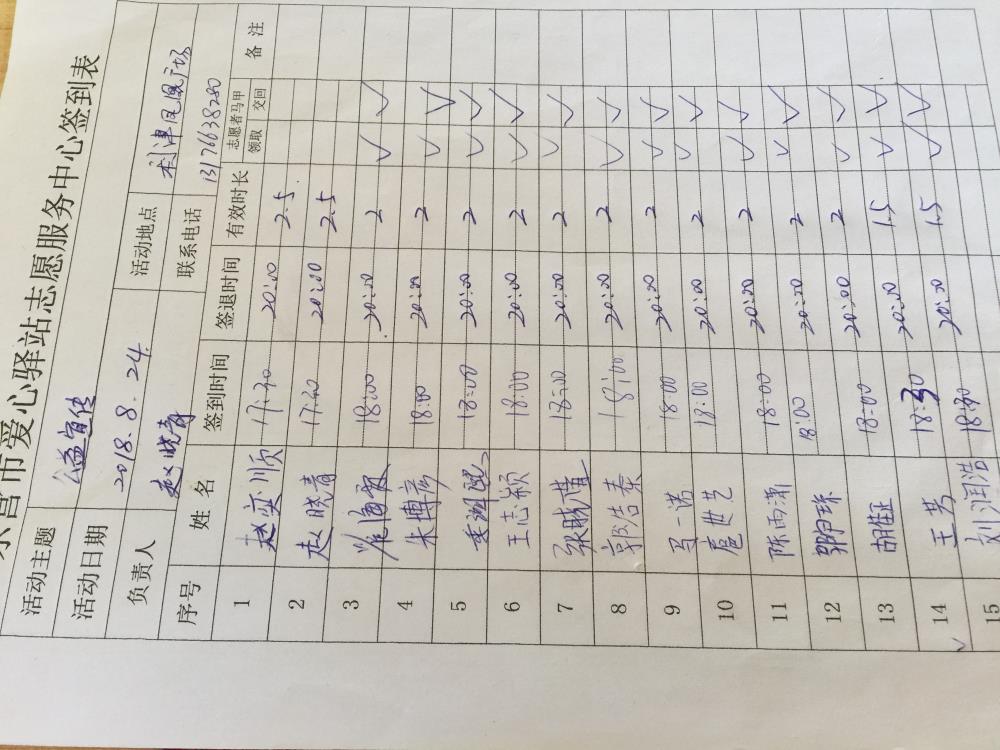 营市爱心驿站志愿服务中心签到表
活动主题 公益宣传
活动日期 2018.8.24. 活动地点 利津凤凰广场
负责人 赵晓青 联系电话 13176638280
序号 姓名 签到时间 签退时间 有效时长 志愿者马甲 领取 交回 备注
1 赵奕顺 17:30 20:00 2.5
2 赵晓青 17:30 20:00 2.5
3 海霞 18:00 20:00 2 ✓ ✓
4 朱博彦 18:00 20:00 2 ✓ ✓
5 18:00 20:00 2 ✓ ✓
6 王志颖 18:00 20:00 2 ✓ ✓
7 张晓萱 18:00 20:00 2 ✓ ✓
8 郭浩泰 18:00 20:00 2 ✓ ✓
9 马一诺 18:00 20:00 2 ✓ ✓
10 扈世艺 18:00 20:00 2 ✓ ✓
11 陈雨潇 18:00 20:00 2 ✓ ✓
12 18:00 20:00 2 ✓ ✓
13 胡胜 18:00 20:00 2 ✓ ✓
14 王芳 18:30 20:00 1.5 ✓ ✓
15 刘润浩 18:30 20:00 1.5 ✓ ✓